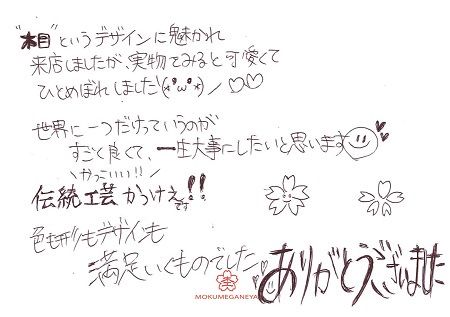 "木目"というデザインに魅かれ
来店しましたが、実物でみると可愛くて
ひとめぼれしました(*°ω°*)ノ♡♡
世界に一つだけっていうのが
すごく良くて、一生大事にしたいと思います
\かっこいい!!/
伝統工芸かっけぇです!!
色も形もデザインも
満足いくものでした
ありがとうございました
MOKUMEGANEYA